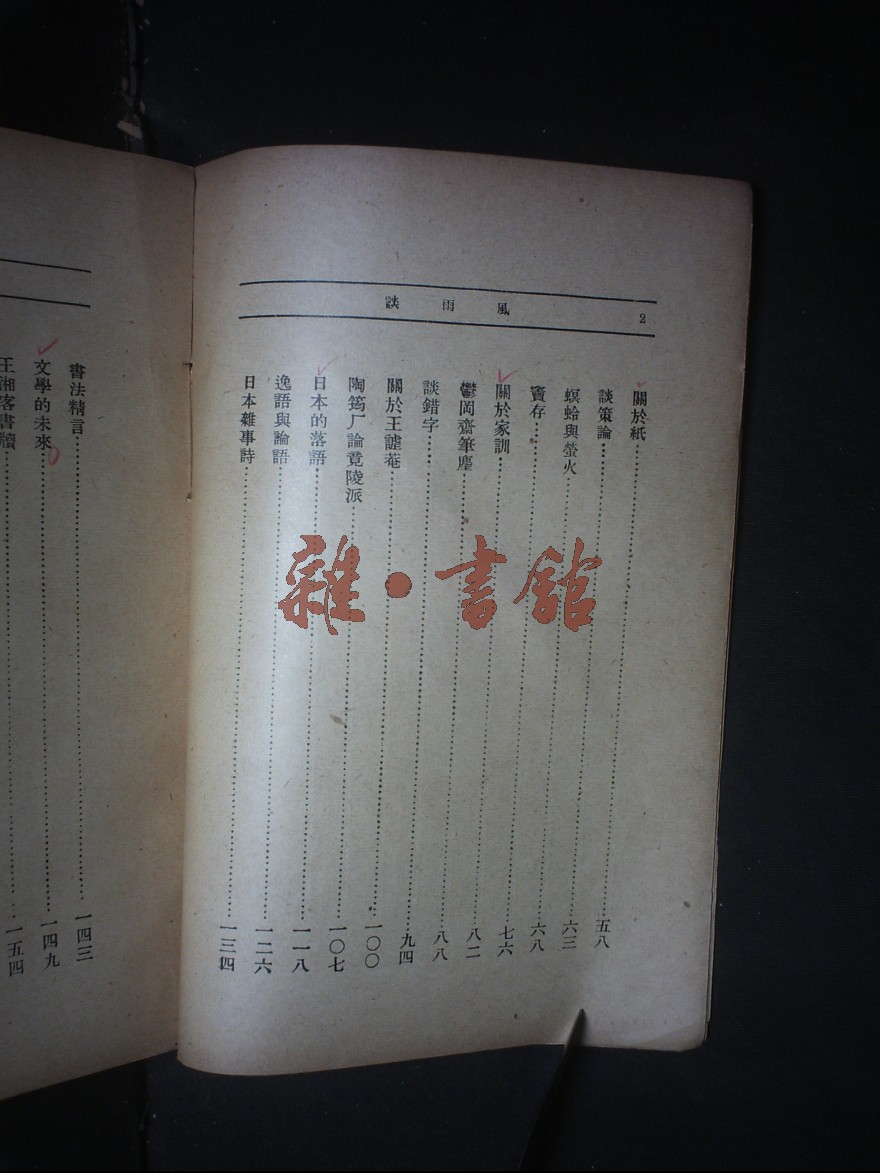 風雨談 2
關於紙……五八
談策論……六三
螟蛉與螢火……六八
竇存……七六
關於家訓……八二
鬱岡齋筆麈……八八
談錯字……九四
關於王謔菴……一〇〇
陶筠厂論竟陵派……一〇七
日本的落語……一一八
逸語與論語……一二六
日本雜事詩……一三四
書法精言……一四三
文學的未來……一四九
王湘客書牘……一五四
雜·書館